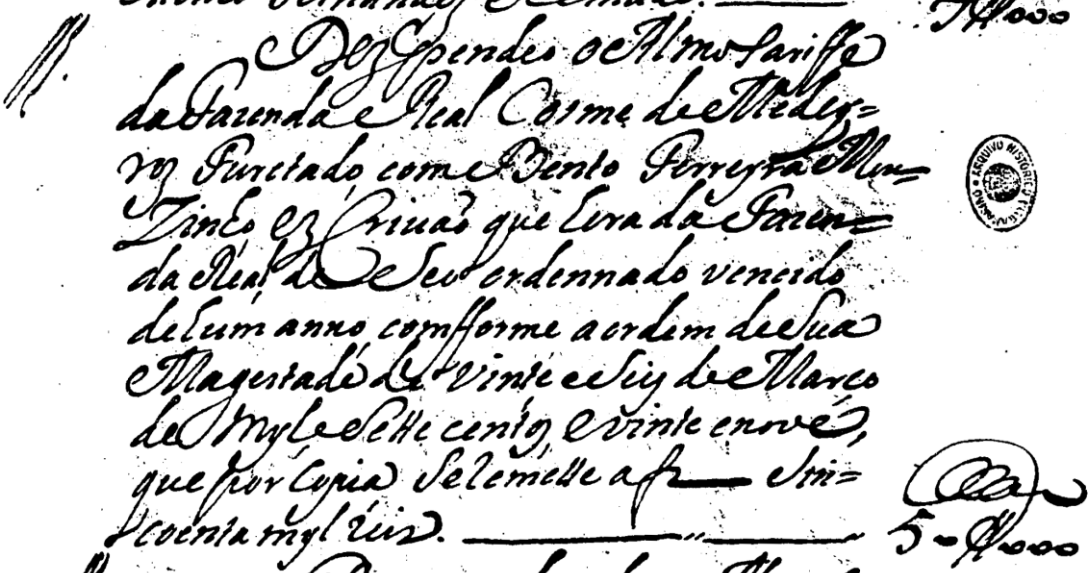 Dezpendeo o Almoxariffe
da Fazenda Real Cosme de Medey=
roz Furtado com Bento Ferreyra Mou=
zinho ezcrivaõ que hera da Fazen=
da Real de Seo ordennado vencido
de hum anno, comfforme a ordem de Sua
Magestade de vinte e Seis de Março
de Myl e Sette centos, e vinte e nove,
que por Copia Se remette a f Sin=
coenta myl reis.
ARQUIVO HISTORICO ULTRAMARINO